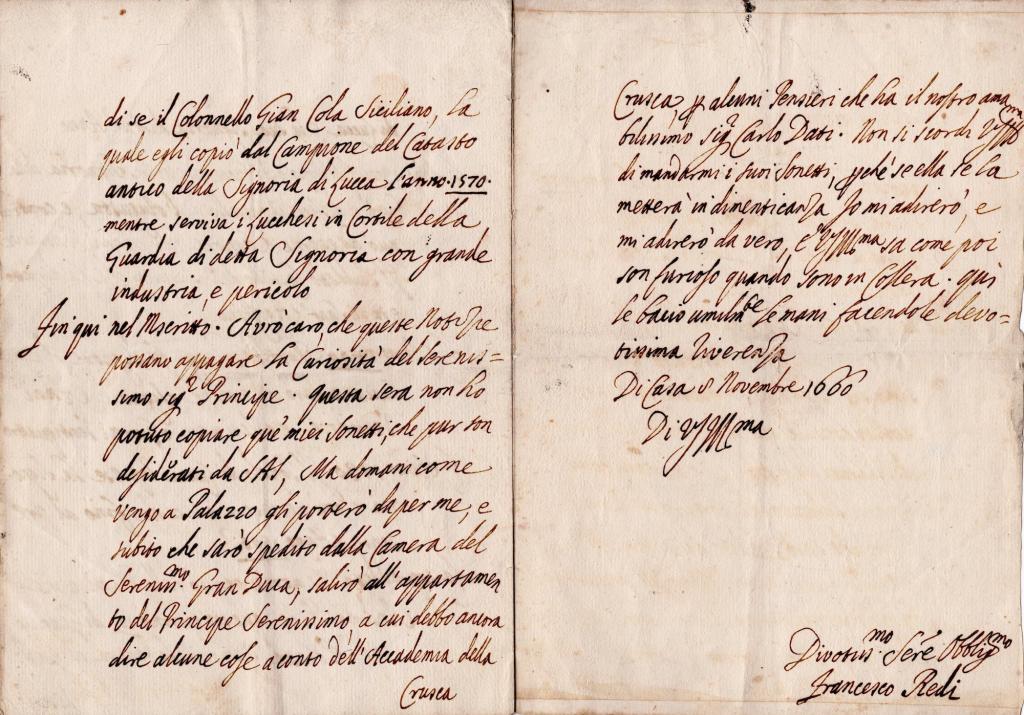 di se il Colonnello Gian Cola Siciliano, la
quale egli copiò dal Campione del Catasto
antico della Signoria di Lucca l'anno 1570.
mentre serviva i Lucchesi in Cortile della
Guardia di detta Signoria con grande
industria, e pericolo
fin qui nel Mscritto. Avrò caro, che queste Notizie
possano appagare la Curiosità del Serenis=
simo sig.r Principe. questa sera non ho
potuto copiare que' miei Sonetti, che pur son
desiderati da SAS, Ma domani come
vengo a Palazzo gli porterò da per me, e
subito che sarò spedito dalla Camera del
Sereniss.mo Gran Duca, salirò all'appartamen
to del Principe Serenissimo a cui debbo ancora
dire alcune cose a conto dell'Accademia della
Crusca
Crusca p alcuni Pensieri che ha il nostro ama
bilissimo sig.r Carlo Dati. Non si scordi VSIllma
di mandarmi i suoi Sonetti, pché se ella se la
metterà in dimenticanza Io mi adirerò, e
mi adirerò da vero, e VSIllma sa come poi
son furioso quando sono in Collera. qui
le bacio umilmte le mani facendole devo=
tissima riverenza
Di Casa 8 Novembre 1660
Di VSIllma
Divotiss.mo Serre Obblig.mo
Francesco Redi